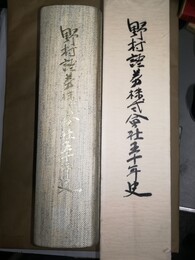 野村證券株式會社五十年史
野村證券株式會社五十年史